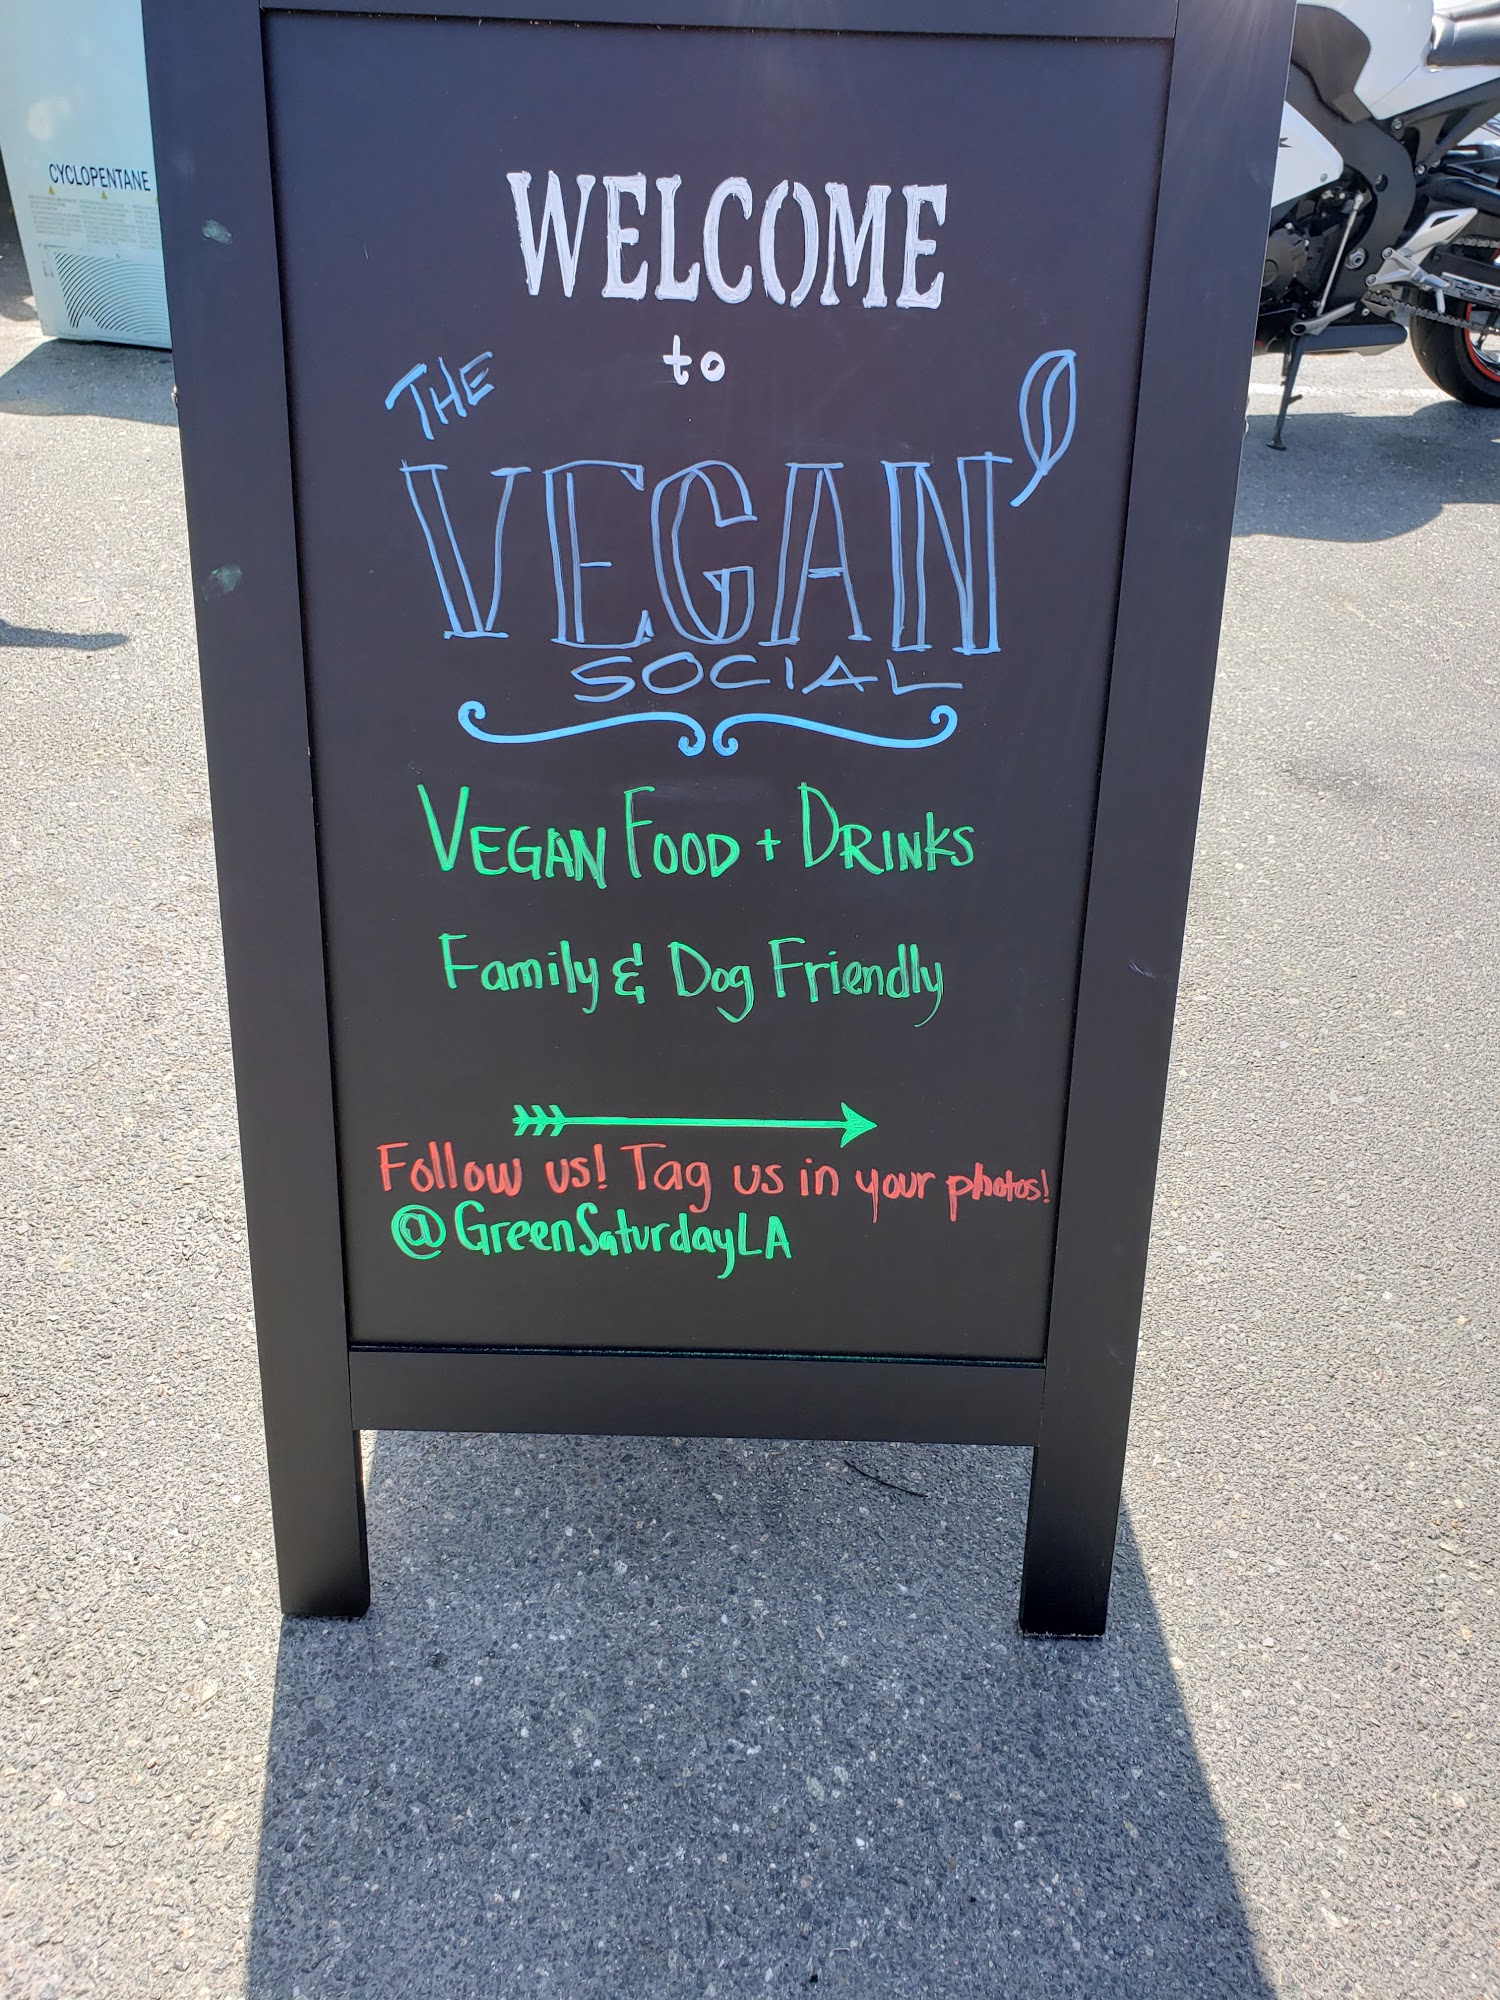 CYCLOPENTANE
WELCOME
to
THE
VEGAN
SOCIAL
VEGAN FOOD + DRINKS
Family & Dog Friendly
Follow us! Tag us in your photos!
@GreenSaturdayLA